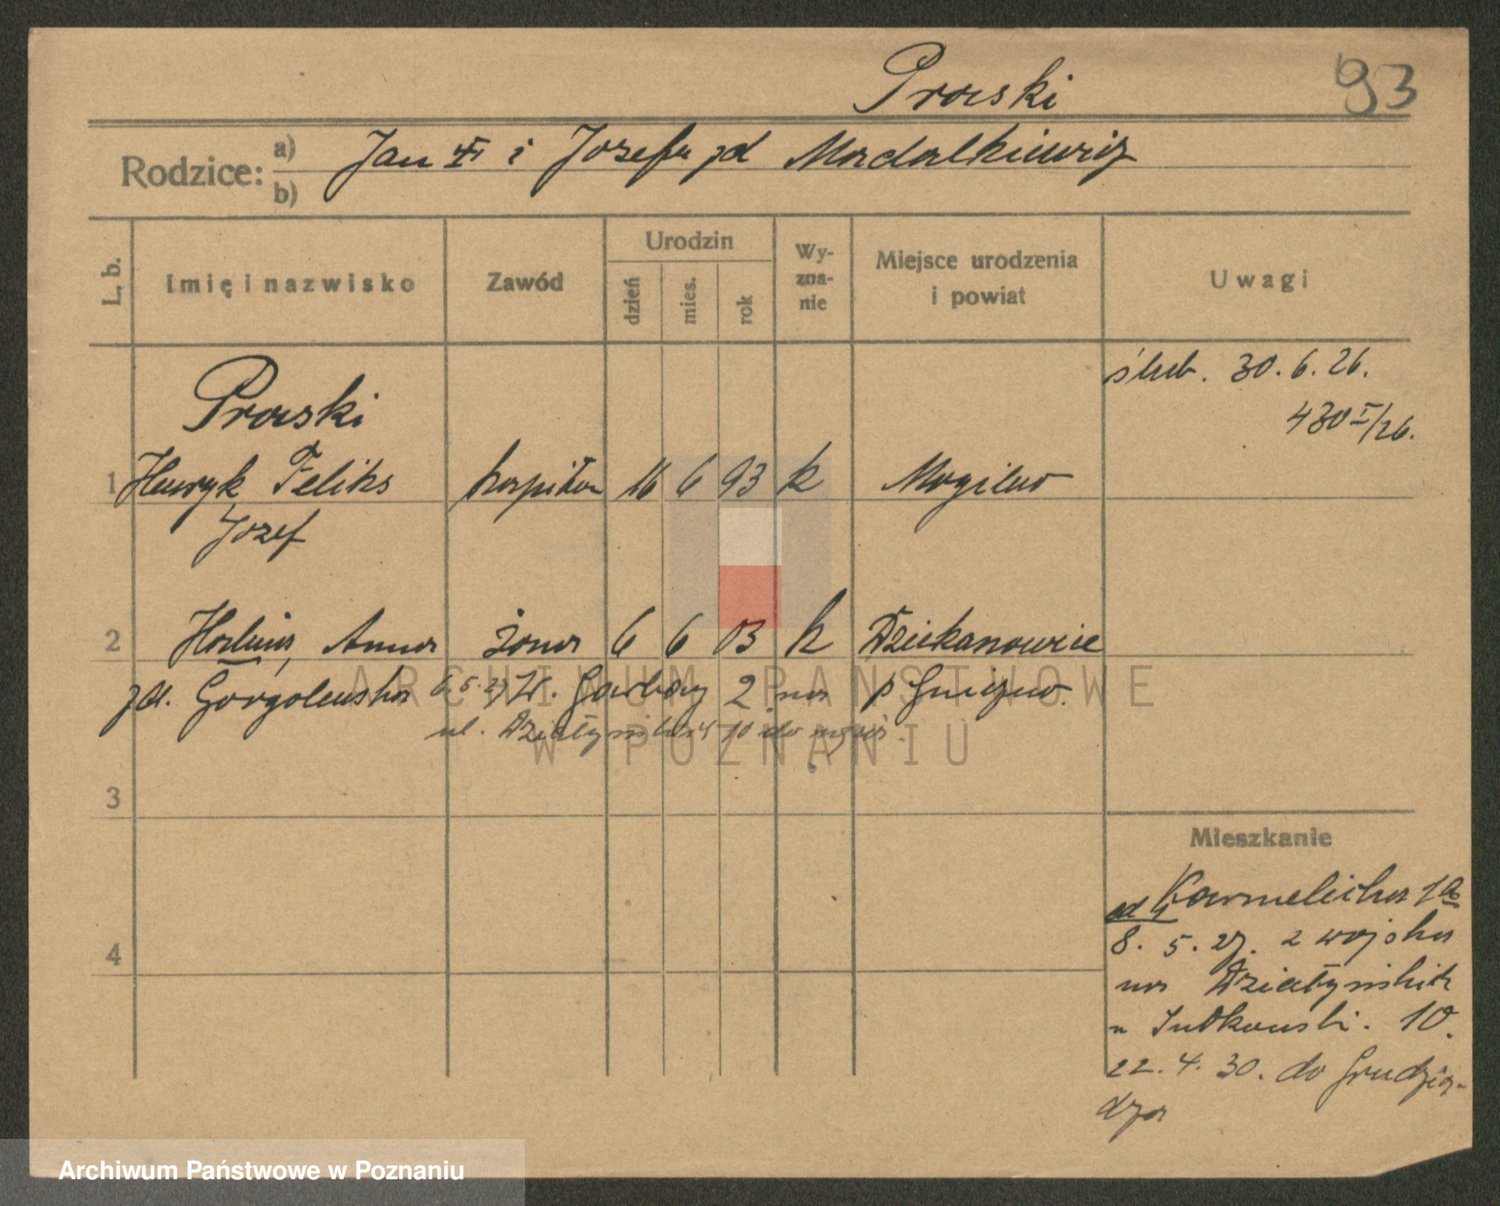 Praski
93
Rodzice: a) b)
Jan i Józefa zd Madalkiewicz
L. b.
Imię i nazwisko
Zawód
Urodzin
dzień
mies.
rok
Wy-
zna-
nie
Miejsce urodzenia
i powiat
Uwagi
ślub. 30. 6. 26.
430 I/26.
Praski
1 Henryk Feliks kapitan 16 6 93 k Mogilno
Józef
2 Halina, Anna żona 6 6 03 k Dziekanowice
zd. Gorgolewska 6. 5. 27 W. Garbary 2 na p Gniezno.
ul. Działyńskich 10 do męża.
3
4
Mieszkanie
Karmelicka 1a
8. 5. 27. z wojska
na Działyńskich
10.
22. 4. 30. do Grudzią-
dza
ARCHIWUM PAŃSTWOWE
W POZNANIU
Archiwum Państwowe w Poznaniu